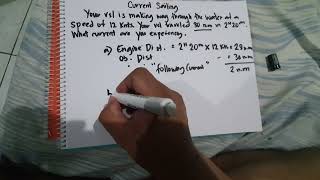 Current Sailing
Your vsl is making way through the water at a
speed of 12 knts. You've traveled 30 nm in 2ʰ20ᵐ
What current are you experiencing.
a) Engine Dist. = 2ʰ20ᵐ X 12 Kn = 28 nm
OG. Dist. = 30 nm
"following current" 2 n.m